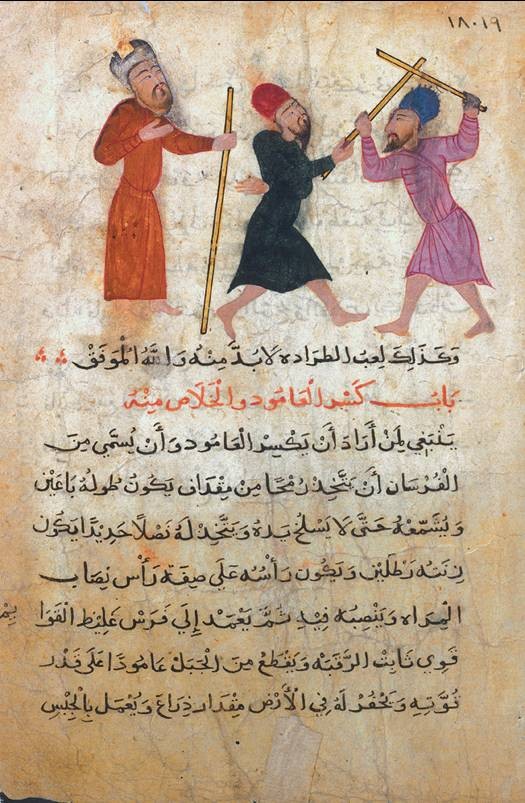 ١٨٠١٩
وَكَذَلِكَ لعِبُ الطراده لَا بُدَّ مِنْهُ وَاللهُ الْمُوَفِّقْ
بَابُ كَسْرِ الْعَامُودِ وَالْخَلَاصِ مِنْهُ
يَنْبَغِي لِمَنْ أَرَادَ أَنْ يَكْسِرَ الْعَامُودَ وَأَنْ يُسَمَّي مِنَ
الْفُرْسَانِ أَنْ يَتَّخِذَ رُمْحًا مِنْ يَكُونُ طُولُهُ بَاعَيْنِ
وَيُشَمِّعُهُ حَتَّى لَا يَسْلَخَ يَدَهُ وَيَتَّخِذَ لَهُ نَصْلًا حَدِيدًا يَكُونُ
زِنَتُه رَطْلَيْنِ وَيَكُونُ رَأْسُهُ عَلَي صِفَةِ رَأْسِ نِصَابِ
الْمِرَاه وَيَنْصِبُهُ فِيهِ ثُمَّ يَعْمَدُ إِلَي فَرَسٍ غَلِيظِ الْقَوَا
قَوِي ثَابِتِ الرَّقَبَهْ وَيَقْطَعُ مِنَ الْجَبَلِ عَامُودًا عَلَى قَدْرِ
قُوَّتِهِ وَيَحْفُرُ لَهُ فِي الْأَرْضِ مِقْدَارَ ذِرَاعٍ وَيُعْمَلُ بِالْجِبْسِ